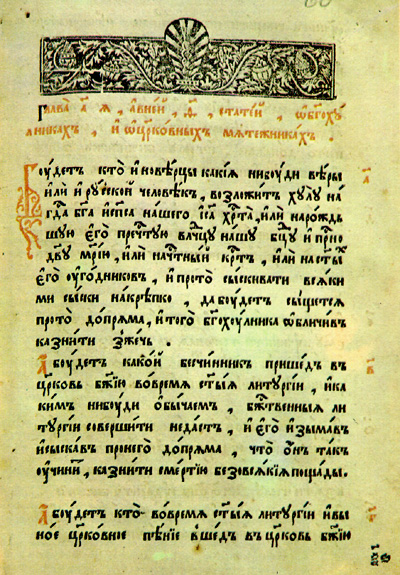 Глава̀ а҃ ѧ , а в не́й , ѳ҃ , стате́й , ѡ бг҃охꙋ́
лникахъ , и ѡ цр҃ковныхъ мѧте́жникахъ .
Боу́детъ кто̀ и҆новѣ́рцы какїѧ нибоуди вѣ́ры
и҆лѝ и҆ роу́ской человѣ́къ , возложи́тъ хꙋлꙋ̀ на
гдⷭ҇а бг҃а и҆ сп҃са нашего і҆с҃а хрⷭ҇та̀ , и҆лѝ на рождь
шꙋю є҆го̀ пречⷭ҇тꙋю влⷣчцꙋ нашꙋ бцⷣꙋ и҆ прⷭ҇но
дв҃ꙋ мр҃їю , и҆лѝ на чтⷭ҇ный крⷭ҇тъ , и҆лѝ на ст҃ы́хъ
є҆го̀ оу҆го́дниковъ , и҆ про то̀ сыскивати всѧки
ми сыски накрѣ́пко , да боу́детъ сы́щетсѧ
про то̀ допрѧма , и҆ того̀ бг҃охоу́лника ѡ҆бличи́въ
казни́ти зже́чь .
а҃
А боу́детъ како́й бесчи́нникъ прише́дъ въ
в҃
цр҃ковь бж҃їю во времѧ ст҃ы́ѧ литꙋргі́и , и҆ ка
кимъ нибоуди ѡ҆бы́чаемъ , бжⷭ҇твенныѧ ли
тꙋргі́и соверши́ти не да́стъ , и҆ є҆го̀ и҆зыма́въ
и҆ сыска́въ про него̀ допрѧма , что ѻ҆нъ та́къ
оу҆чини́тъ , казни́ти сме́ртїю безо всѧ́кїѧ поща́ды .
А боу́детъ кто̀ во времѧ ст҃ы́ѧ литꙋргі́и и҆ въ и҆
ное цр҃ковное пѣ́нїе вше́дъ въ цр҃ковь бж҃їю